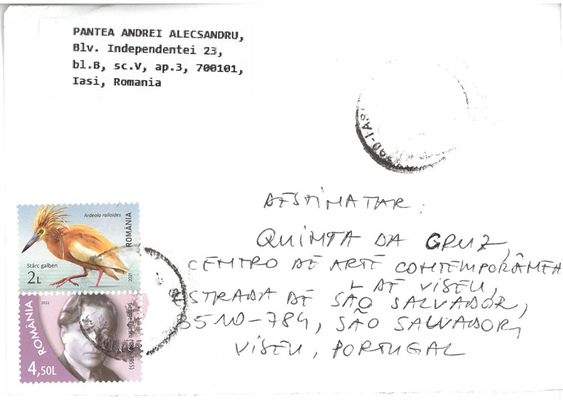 PANTEA ANDREI ALECSANDRU,
Blv. Independentei 23,
bl.B, sc.V, ap.3, 700101,
Iasi, Romania
DESTINATAR:
QUINTA DA CRUZ,
CENTRO DE ARTE CONTEMPORÂNEA
DE VISEU,
ESTRADA DE SÃO SALVADOR,
3510-784, SÃO SALVADOR,
VISEU, PORTUGAL
Ardeola ralloides
ROMÂNIA
Stârc galben
2L
ROMÂNIA
4,50L